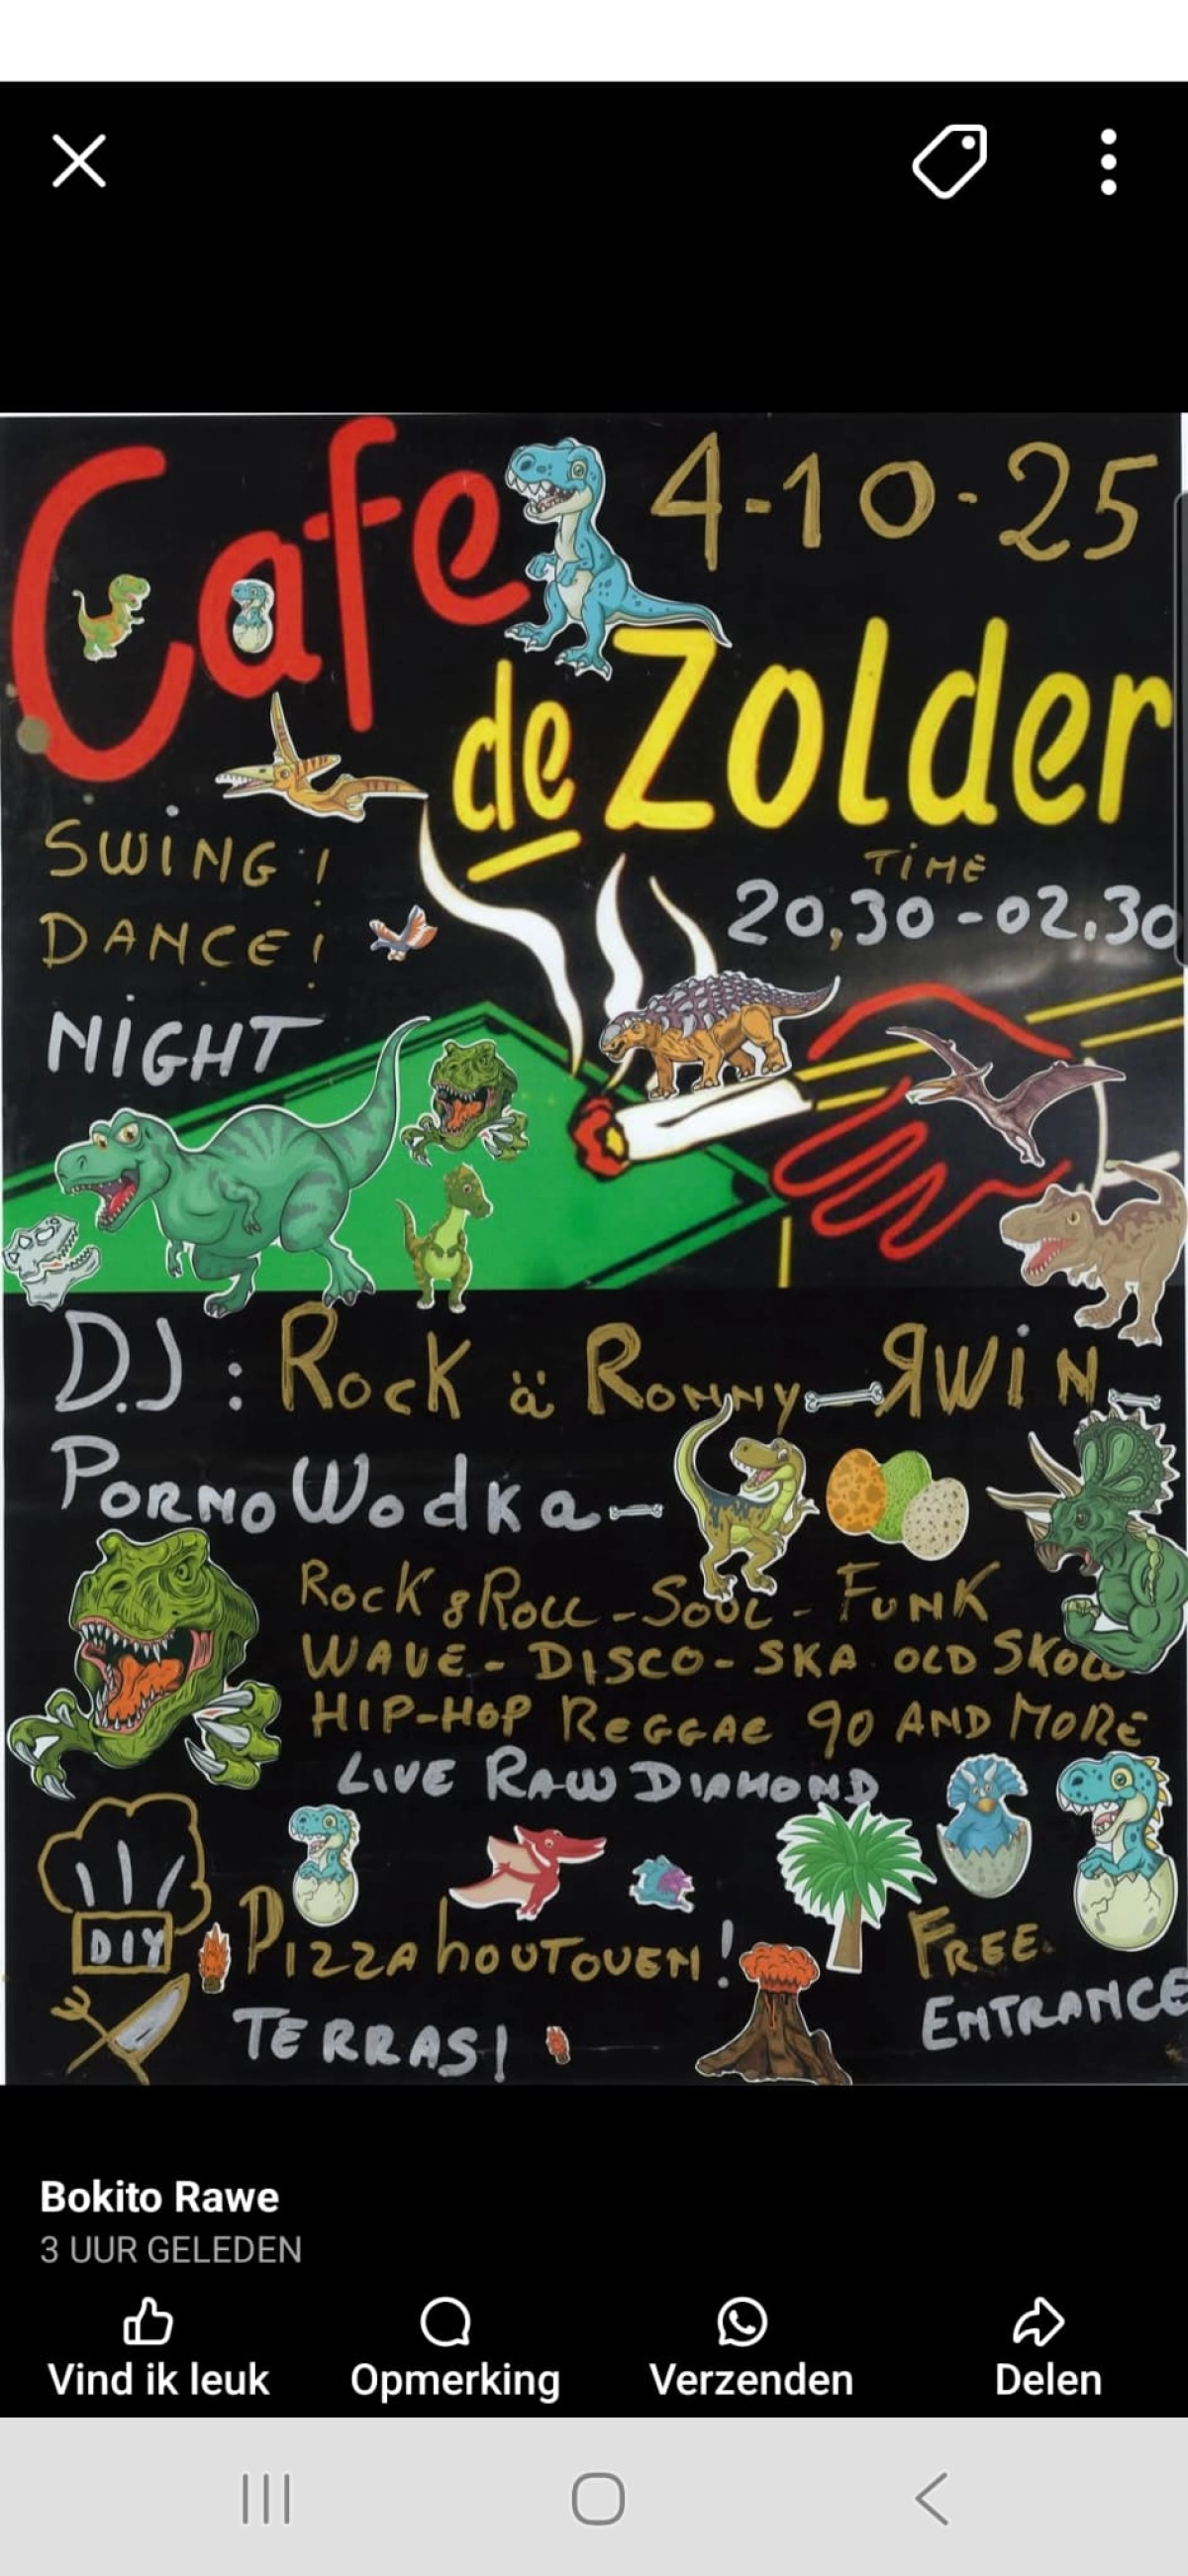 Cafe
4-10-25
de Zolder
SWING!
DANCE!
NIGHT
TIME
20,30-02.30
D.J: Rock ä Ronny - ЯWIN -
PORNO Wodka -
Rock & Roll - Soul - FUNK
WAVE - DISCO - SKA OLD SKOLL
HIP-HOP REGGAE 90 AND MORE
LIVE RAW DIAMOND
DIY
PIZZA hOUTOVEN!
TERRAS!
FREE
ENTRANCE
Bokito Rawe
3 UUR GELEDEN
Vind ik leuk
Opmerking
Verzenden
Delen